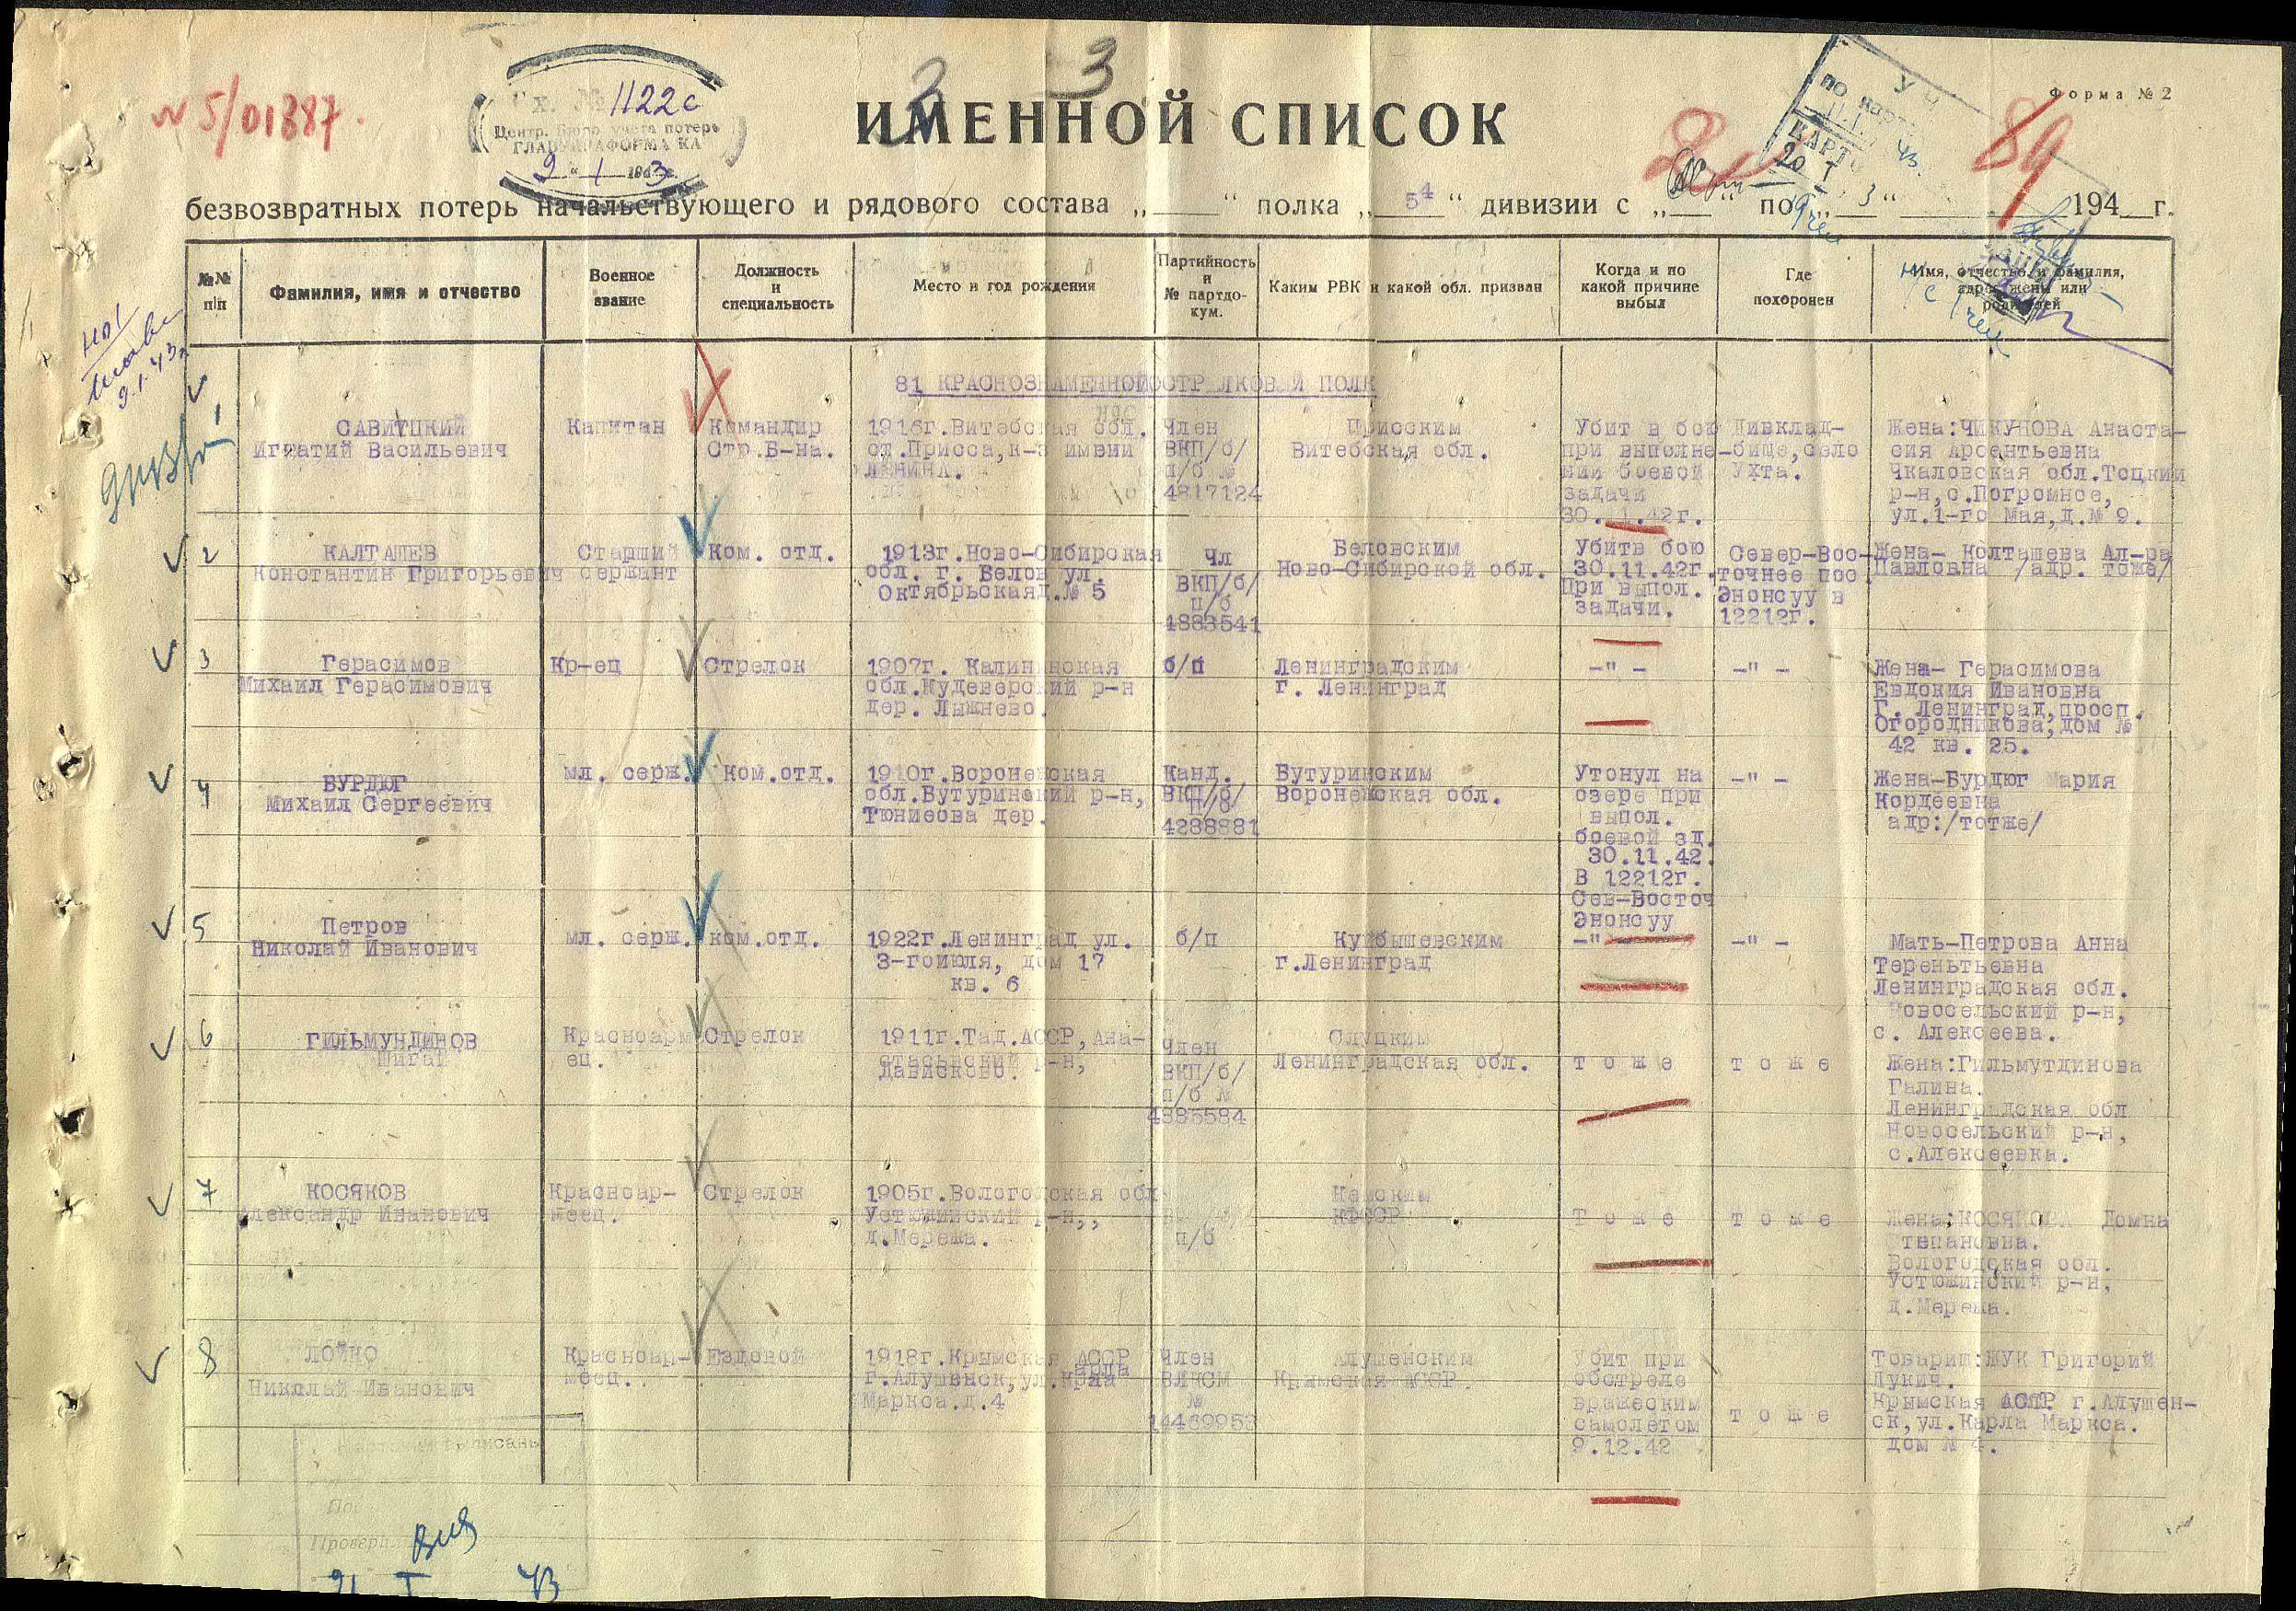 № 5/01387.
Вх. № 1122с
Центр. Бюро учета потерь
ГЛАВУПРАФОРМА КА
9 " 1 1943 г.
3
Форма № 2
ИМЕННОЙ СПИСОК
89
безвозвратных потерь начальствующего и рядового состава „ “ полка „ 54 “ дивизии с „ “ по „ “ 194 г.
№№ п/п
Фамилия, имя и отчество
Военное звание
Должность и специальность
Место и год рождения
Партийность и № партдокум.
Каким РВК и какой обл. призван
Когда и по какой причине выбыл
Где похоронен
Имя, отчество и фамилия, адрес жены или родителей
81 КРАСНОЗНАМЕННОЙ СТРЕЛКОВЫЙ ПОЛК
1
САВИТЦКИЙ
Игнатий Васильевич
Капитан
Командир
Стр.Б-на.
1916г.Витебская обл.
ст.Дрисса,к-з имени
ЛЕНИНА.
Член
ВКП/б/
п/б №
4817124
Дрисским
Витебская обл.
Убит в бою
при выполне-
нии боевой
задачи
30. 1.42г.
Дивклад-
бище,село
Ухта.
Жена:ЧИКУНОВА Анаста-
сия Арсентьевна
Чкаловская обл.Тоцкий
р-н,с.Погромное,
ул.1-го Мая,д.№ 9.
2
КАЛТАШЕВ
Константин Григорьевич
Старший
сержант
Ком. отд.
1913г.Ново-Сибирская
обл. г. Белов ул.
Октябрьскаяд.№ 5
Чл
ВКП/б/
п/б
4883541
Беловским
Ново-Сибирской обл.
Убитв бою
30.11.42г.
При выпол.
задачи.
Север-Вос-
точнее пос.
Энонсуу в
12212г.
Жена- Колташева Ал-ра
Павловна /адр. тоже/
3
Герасимов
Михаил Герасимович
Кр-ец
Стрелок
1907г. Калининская
обл.Кудеверский р-н
дер. Лыжнево.
б/п
Ленинградским
г. Ленинград
-"-
-"-
Жена- Герасимова
Евдокия Ивановна
Г. Ленинград,просп.
Огородникова, дом №
42 кв. 25.
4
БУРДЮГ
Михаил Сергеевич
мл. серж.
Ком.отд.
1910г.Воронежская
обл.Бутуринский р-н,
Тюниеова дер.
Канд.
ВКП/б/
п/б
4288881
Бутуринским
Воронежская обл.
Утонул на
озере при
выпол.
боевой зд.
30.11.42.
В 12212г.
Сев-Восточ
Энонсуу
-"-
Жена-Бурдюг Мария
Кордеевна
адр:/тотже/
5
Петров
Николай Иванович
мл. серж.
ком.отд.
1922г.Ленинград ул.
3-гоиюля, дом 17
кв. 6
б/п
Куйбышевским
г.Ленинград
-"-
-"-
Мать-Петрова Анна
Тереньтьевна
Ленинградская обл.
Новосельский р-н,
с. Алексеева.
6
ГИЛЬМУНДИНОВ
Шигат
Красноарм
ец.
Стрелок
1911г.Тад.АССР, Ана-
стасьвский р-н,
Давиеково.
Член
ВКП/б/
п/б №
4385584
Слуцким
Ленинградская обл.
Т о ж е
Т о ж е
Жена:Гильмутдинова
Галина.
Ленинградская обл
Новосельский р-н,
с.Алексеевка.
7
КОСЯКОВ
Александр Иванович
Красноар-
меец.
Стрелок
1905г.Вологодская обл
Устюжинский р-н,,
д.Мережа.
п/б
Кемским
КФССР
Т о ж е
Т о ж е
Жена:КОСЯКОВА Домна
Степановна.
Вологодская обл.
Устюжинский р-н,
д.Мережа.
8
ЛОЙКО
Николай Иванович
Красноар-
меец.
Ездовой
1918г.Крымская АССР
г.Алушенск,ул.Карла
Маркса.д.4
Член
ВЛКСМ
№
14469953
Алушенским
Крымская АССР.
Убит при
обстреле
вражеским
самолетом
9.12.42
Т о ж е
Товарищ:ЖУК Григорий
Лукич.
Крымская АССР г.Алушен-
ск,ул.Карла Маркса.
дом № 4.
Проверил
21 I 43